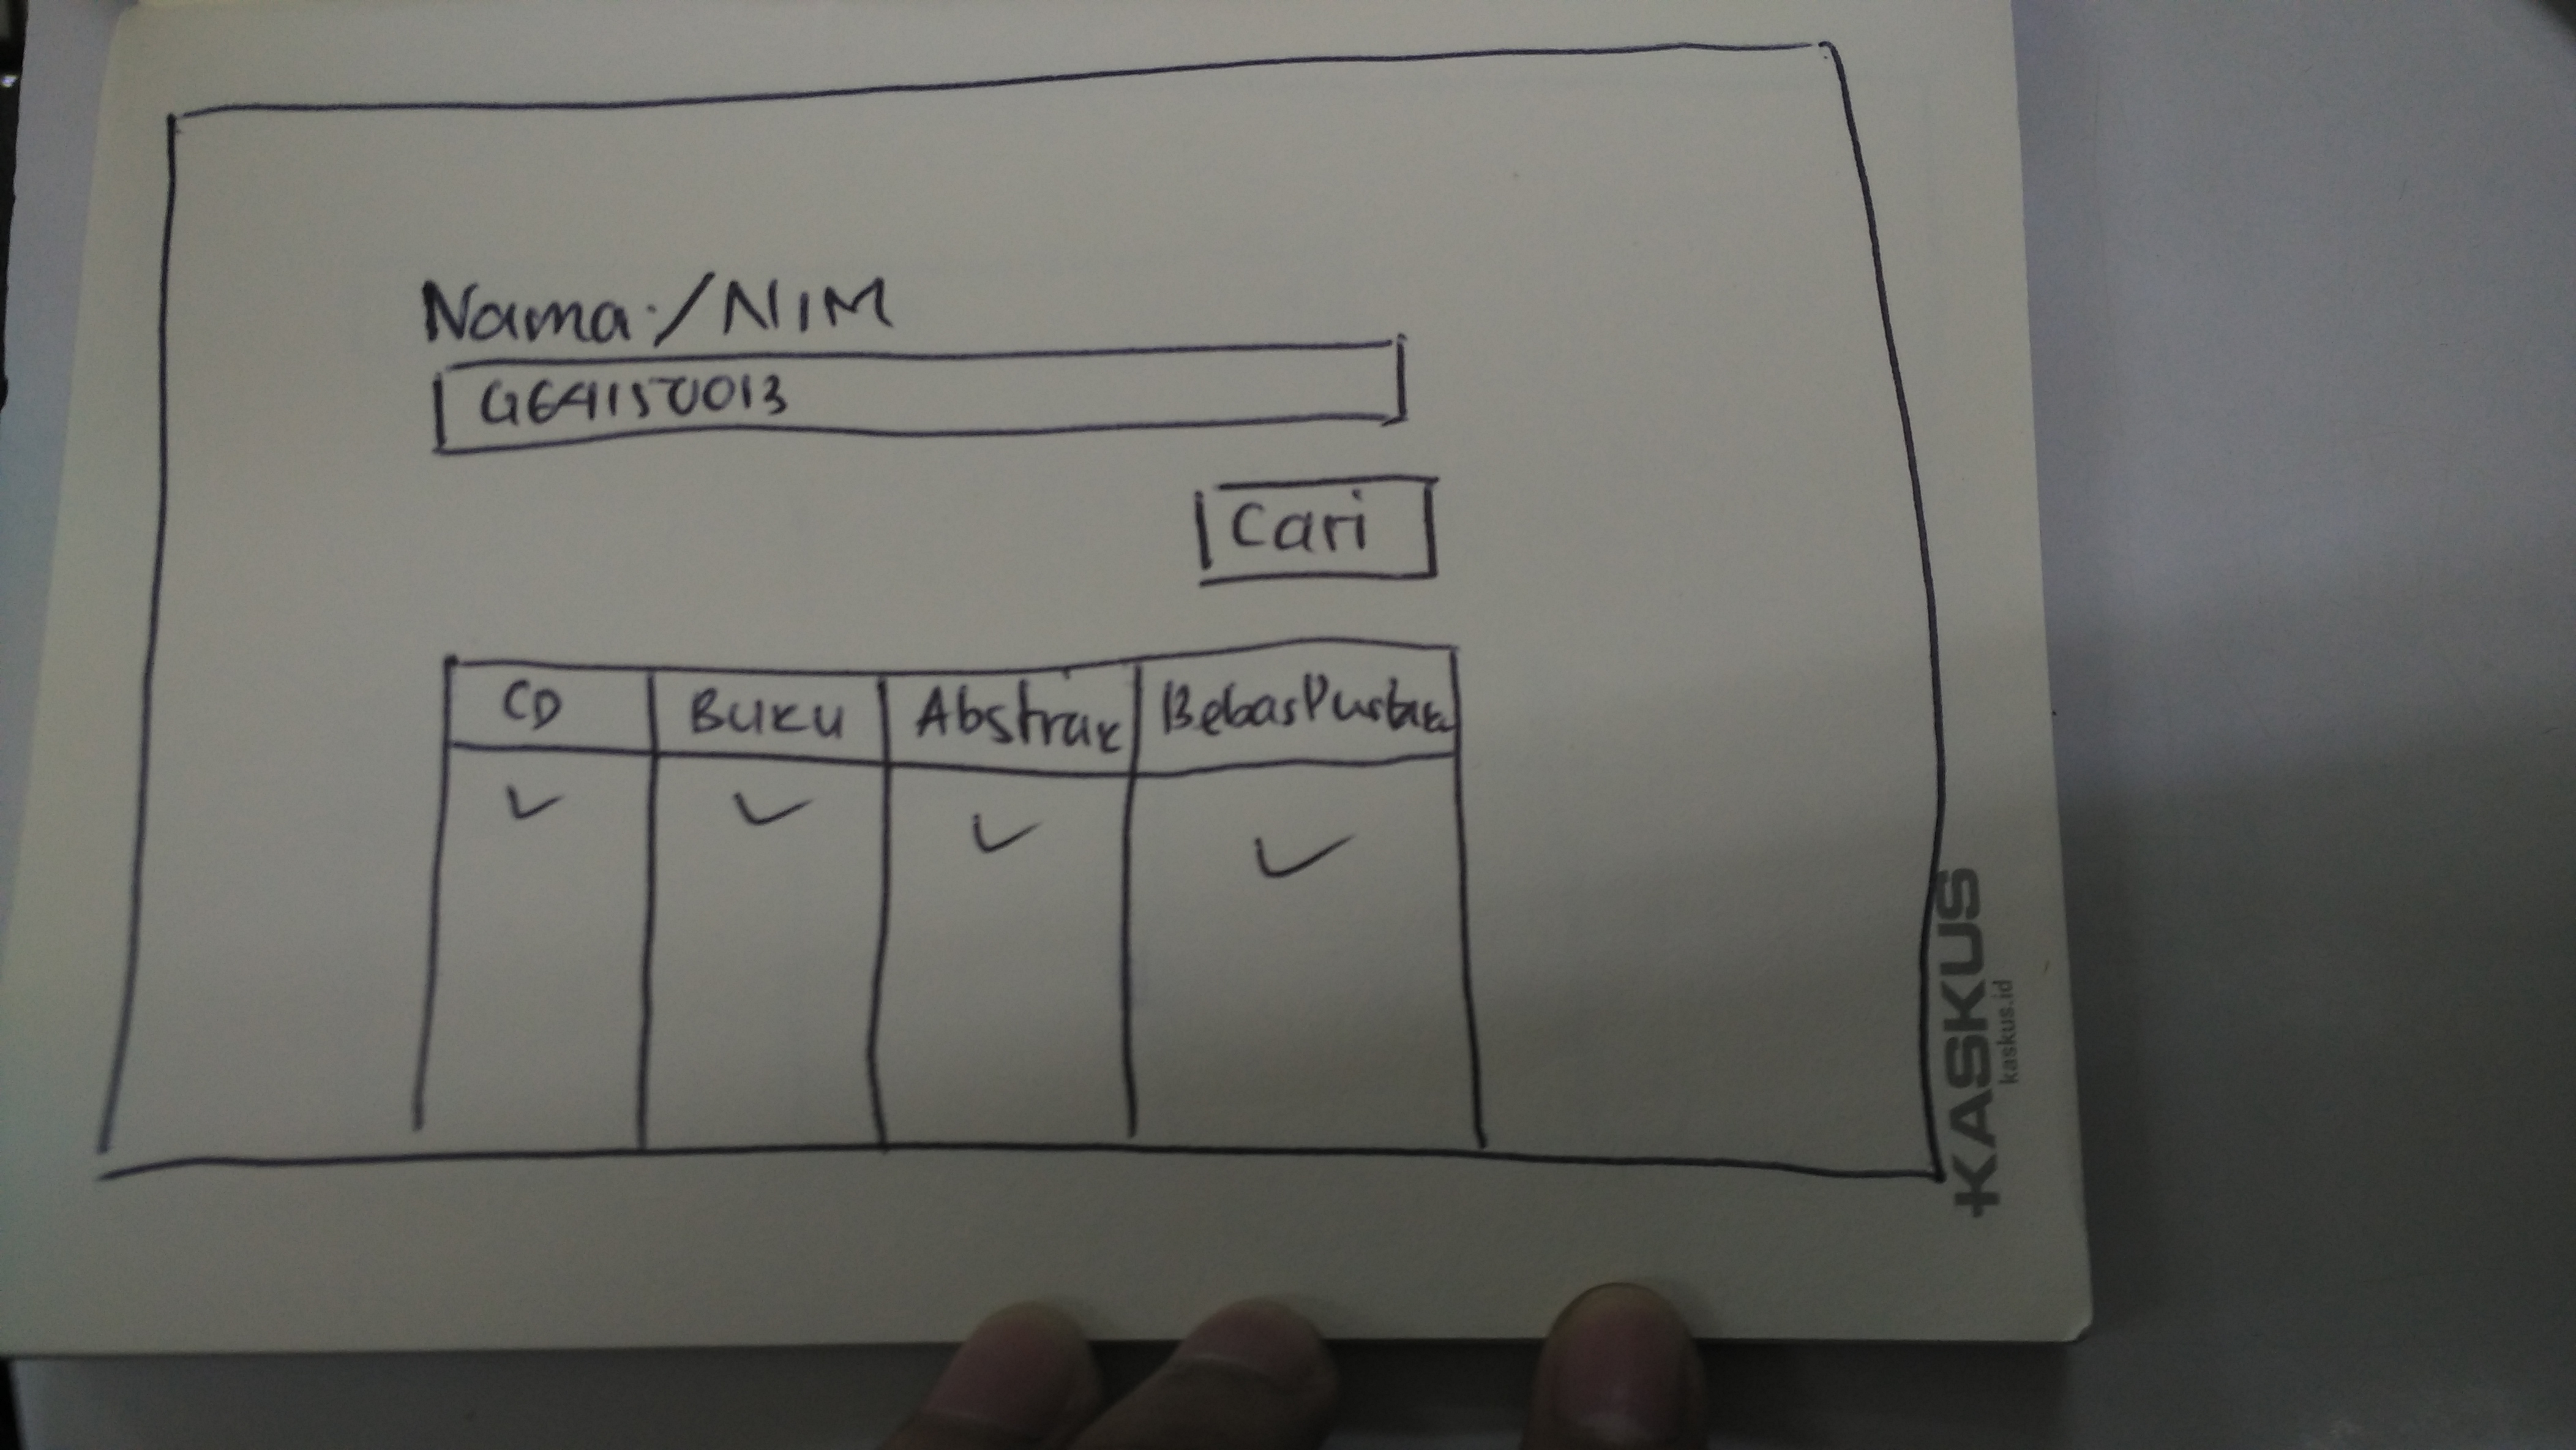 Nama:/NIM
G64150013
Cari
CD Buku Abstrak BebasPustaka
KASKUS
kaskus.id